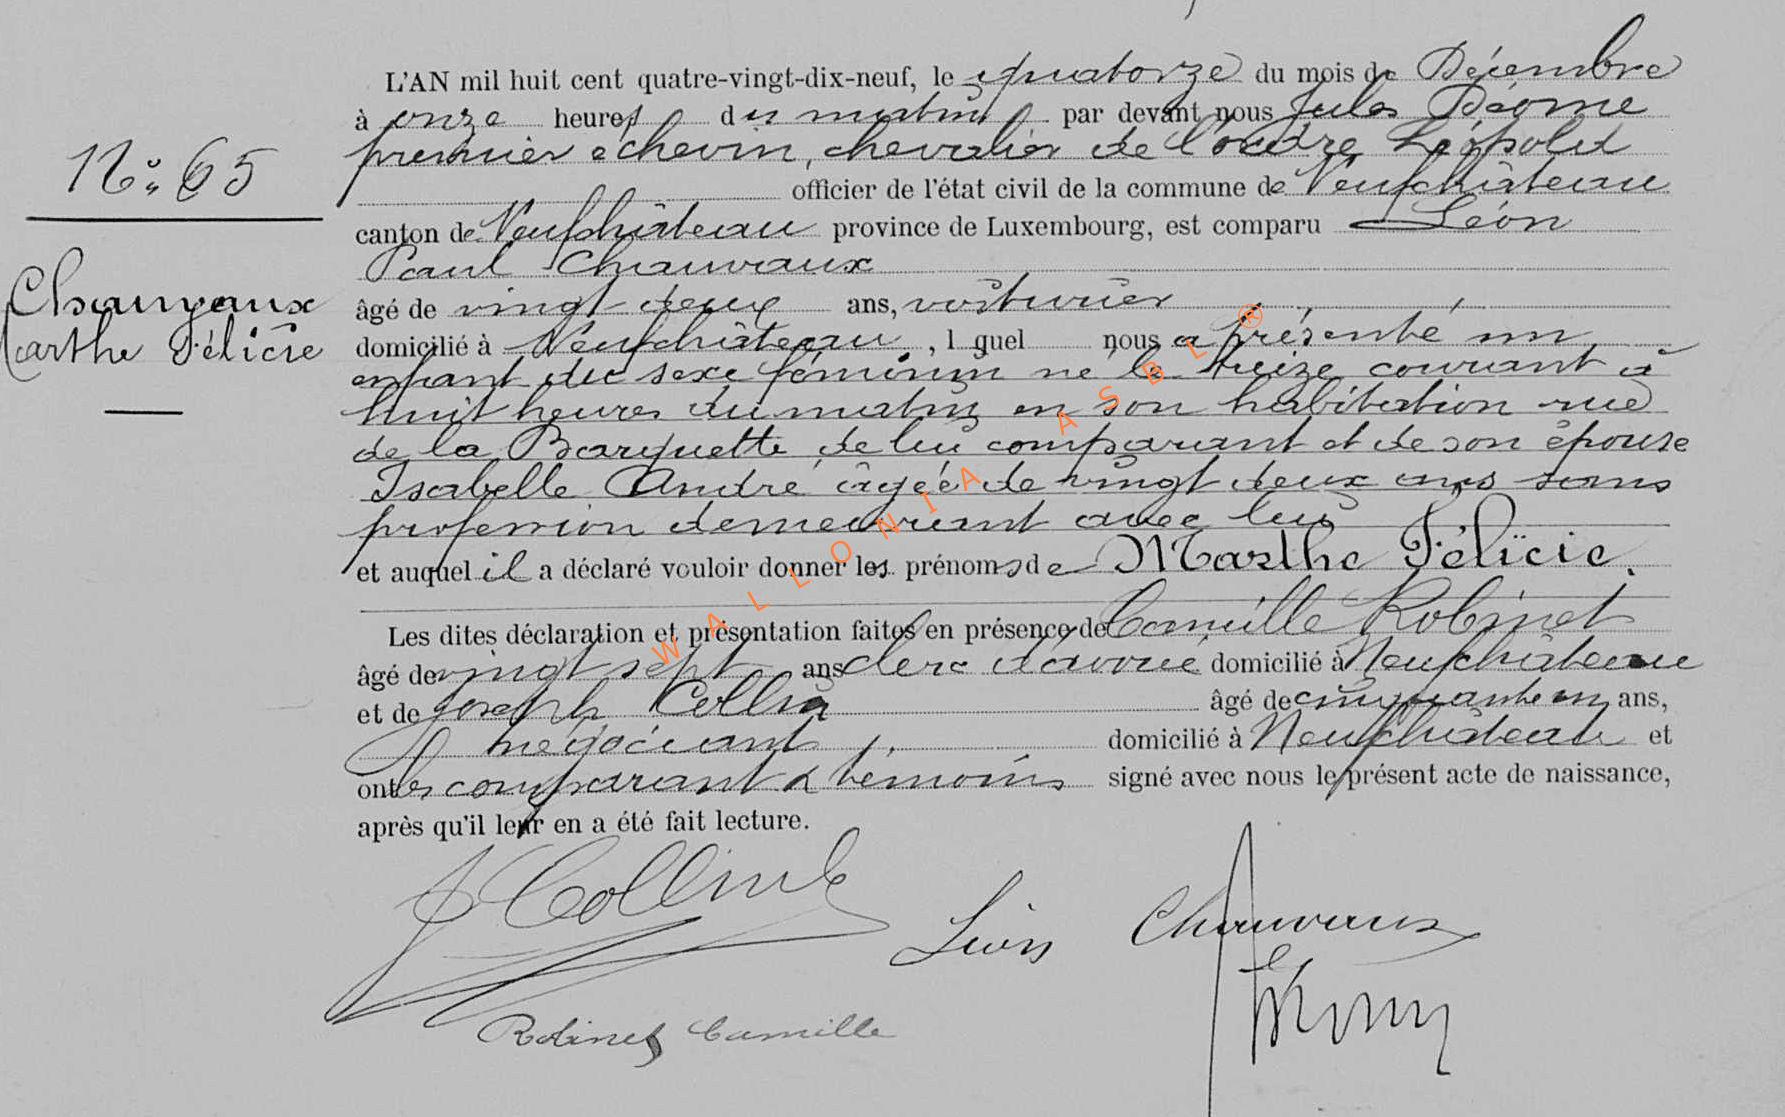 L'AN mil huit cent quatre-vingt-dix-neuf, le quatorze du mois de Décembre
à onze heures du matin par devant nous Jules Déome
premier échevin, chevalier de l'ordre Léopold
officier de l'état civil de la commune de Neufchâteau
canton de Neufchâteau province de Luxembourg, est comparu Léon
Paul Chauvaux
âgé de vingt deux ans, voiturier
domicilié à Neufchâteau, lquel nous a présenté un
enfant du sexe féminin né le treize courant à
huit heures du matin en son habitation rue
de la Barquette de lui comparant et de son épouse
Isabelle André âgée de vingt deux ans sans
profession demeurant avec lui
et auquel il a déclaré vouloir donner les prénoms de Marthe Félicie.
Les dites déclaration et présentation faites en présence de Camille Robinet
âgé de vingt sept ans clerc d'avoué domicilié à Neufchâteau
et de Joseph Collin âgé de cinquante un ans,
négociant, domicilié à Neufchâteau et
ont les comparant & témoins signé avec nous le présent acte de naissance,
après qu'il leur en a été fait lecture.
N° 65
Chauvaux
Marthe Félicie
J Collin
Léon Chauvaux
Robinet Camille
WALLONIA ASBL ®